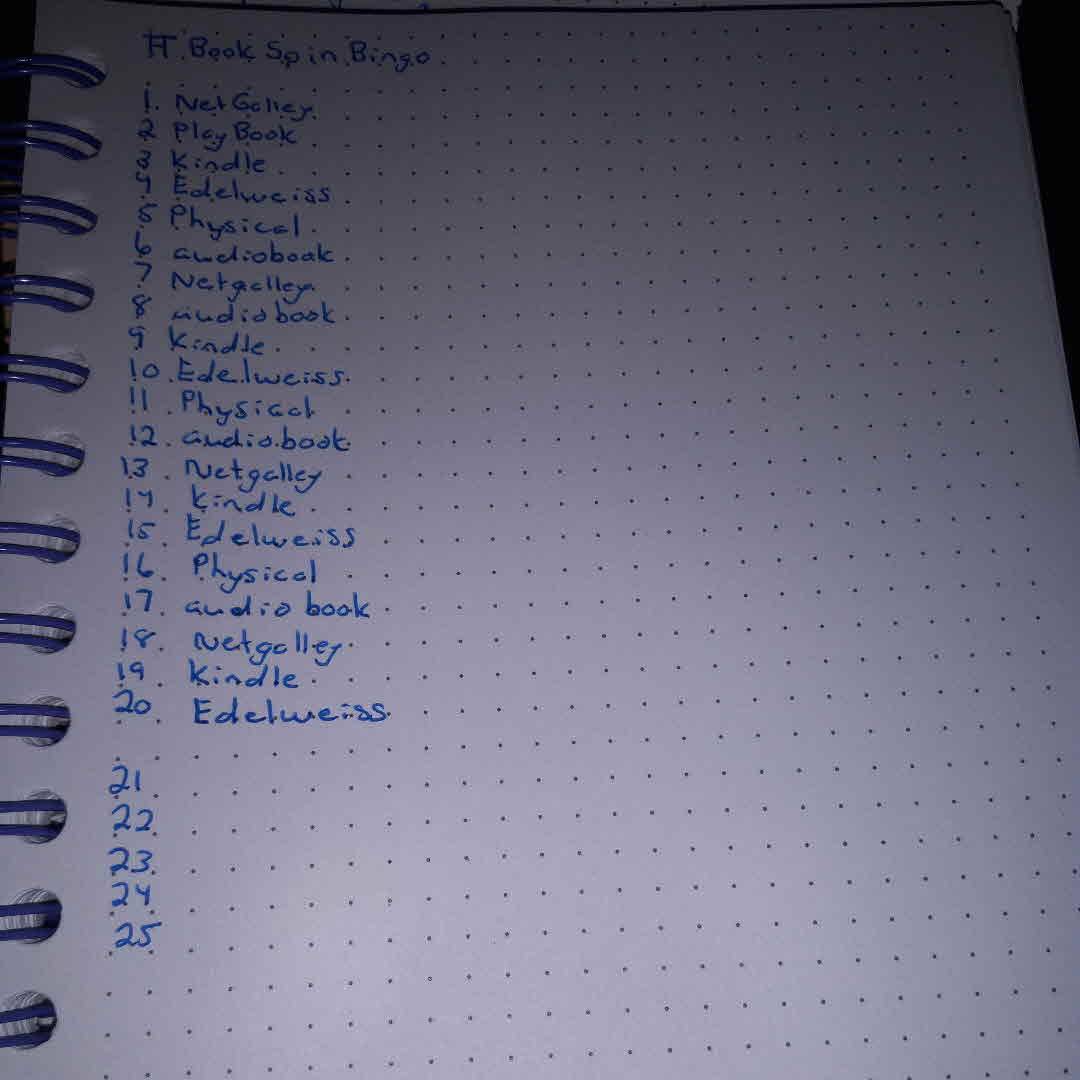 # Book Spin Bingo
1. NetGalley
2 Play Book
3 Kindle
4 Edelweiss
5 Physical
6 audiobook
7 Netgalley
8 audiobook
9 Kindle
10 Edelweiss
11 Physical
12 audiobook
13 Netgalley
14 Kindle
15 Edelweiss
16. Physical
17. audio book
18. Netgalley
19. Kindle
20. Edelweiss
21
22
23
24
25